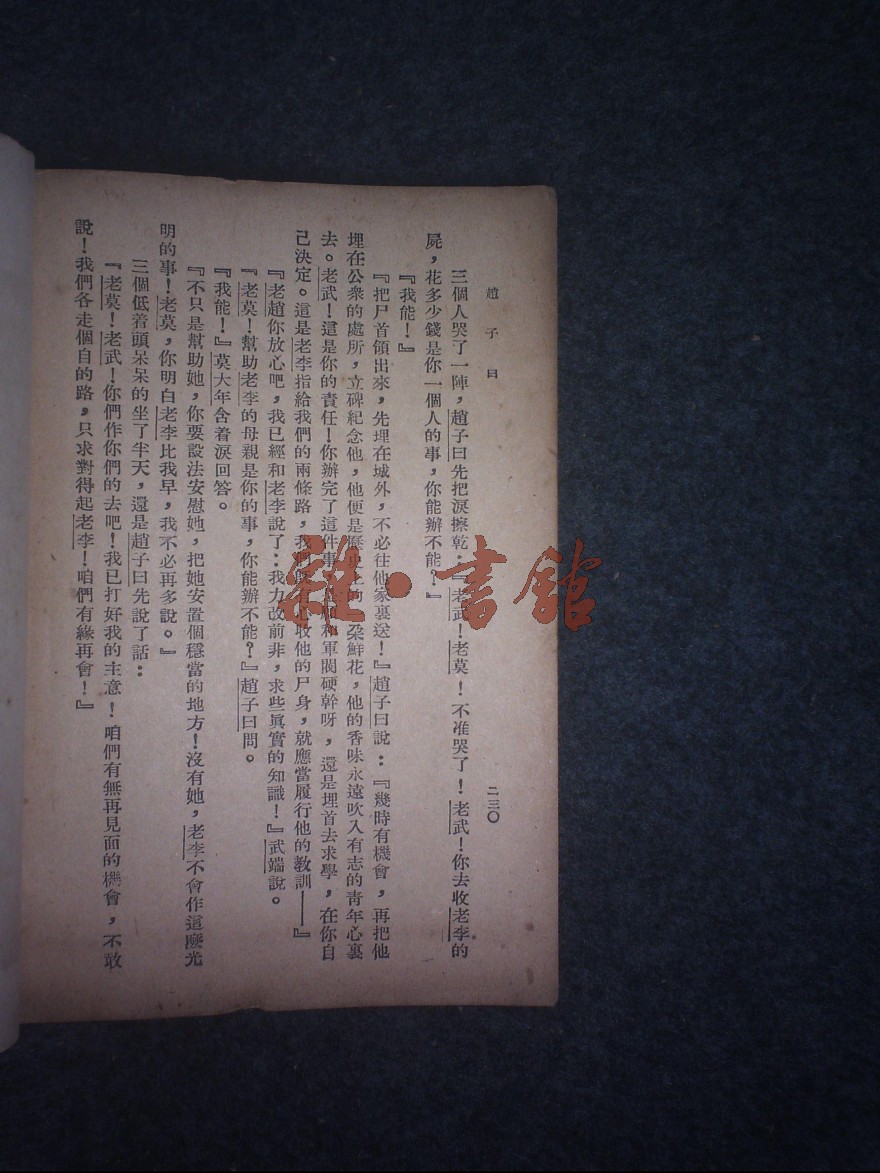 趙子曰
二三〇
三個人哭了一陣，趙子曰先把淚擦乾：『老武！老莫！不准哭了！老武！你去收老李的
屍，花多少錢是你一個人的事，你能辦不能？』
『我能！』
『把尸首領出來，先埋在城外，不必往他家裏送！』趙子曰說：『幾時有機會，再把他
埋在公衆的處所，立碑紀念他，他便是歷史上的朶鮮花，他的香味永遠吹入有志的靑年心裏
去。老武！這是你的責任！你辦完了這件事和軍閥硬幹呀，還是埋首去求學，在你自
己決定。這是老李指給我們的兩條路，我們心收他的尸身，就應當履行他的敎訓——』
『老趙你放心吧，我已經和老李說了：我力改前非，求些眞實的知識！』武端說。
『老莫！幫助老李的母親是你的事，你能辦不能？』趙子曰問。
『我能！』莫大年含着淚回答。
『不只是幫助她，你要設法安慰她，把她安置個穩當的地方！沒有她，老李不會作這麼光
明的事！老莫，你明白老李比我早，我不必再多說。』
三個低着頭呆呆的坐了半天，還是趙子曰先說了話：
『老莫！老武！你們作你們的去吧！我已打好我的主意！咱們有無再見面的機會，不敢
說！我們各走個自的路，只求對得起老李！咱們有緣再會！』
雜·書館